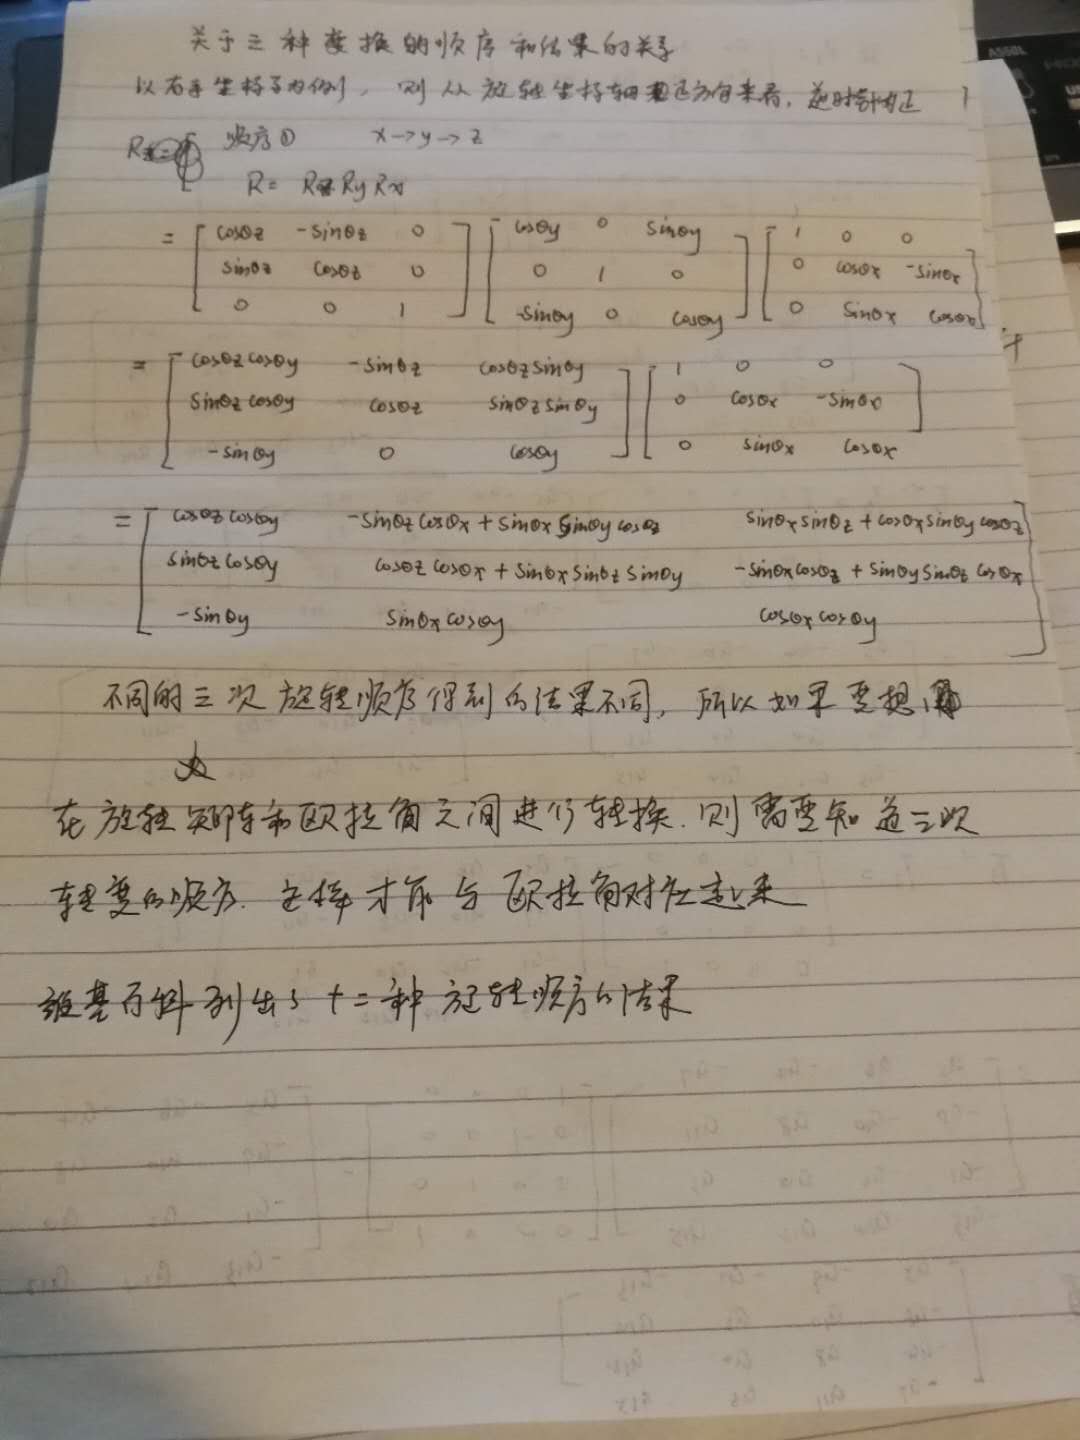 关于三种变换的顺序和结果的关系
以右手坐标系为例，则从旋转坐标轴正方向来看，逆时针为正
顺序① x→y→z
R= Rz Ry Rx
= [ cosθz -sinθz 0 ] [ cosθy 0 sinθy ] [ 1 0 0 ]
[ sinθz cosθz 0 ] [ 0 1 0 ] [ 0 cosθx -sinθx ]
[ 0 0 1 ] [ -sinθy 0 cosθy ] [ 0 sinθx cosθx ]
= [ cosθz cosθy -sinθz cosθz sinθy ] [ 1 0 0 ]
[ sinθz cosθy cosθz sinθz sinθy ] [ 0 cosθx -sinθx ]
[ -sinθy 0 cosθy ] [ 0 sinθx cosθx ]
= [ cosθz cosθy -sinθz cosθx + sinθx sinθy cosθz sinθx sinθz + cosθx sinθy cosθz ]
[ sinθz cosθy cosθz cosθx + sinθx sinθz sinθy -sinθx cosθz + sinθy sinθz cosθx ]
[ -sinθy sinθx cosθy cosθx cosθy ]
不同的三次旋转顺序得到的结果不同，所以如果要想
在旋转矩阵和欧拉角之间进行转换，则需要知道三次
转变的顺序，这样才能与欧拉角对应起来
维基百科列出了十二种旋转顺序的结果
ASSL